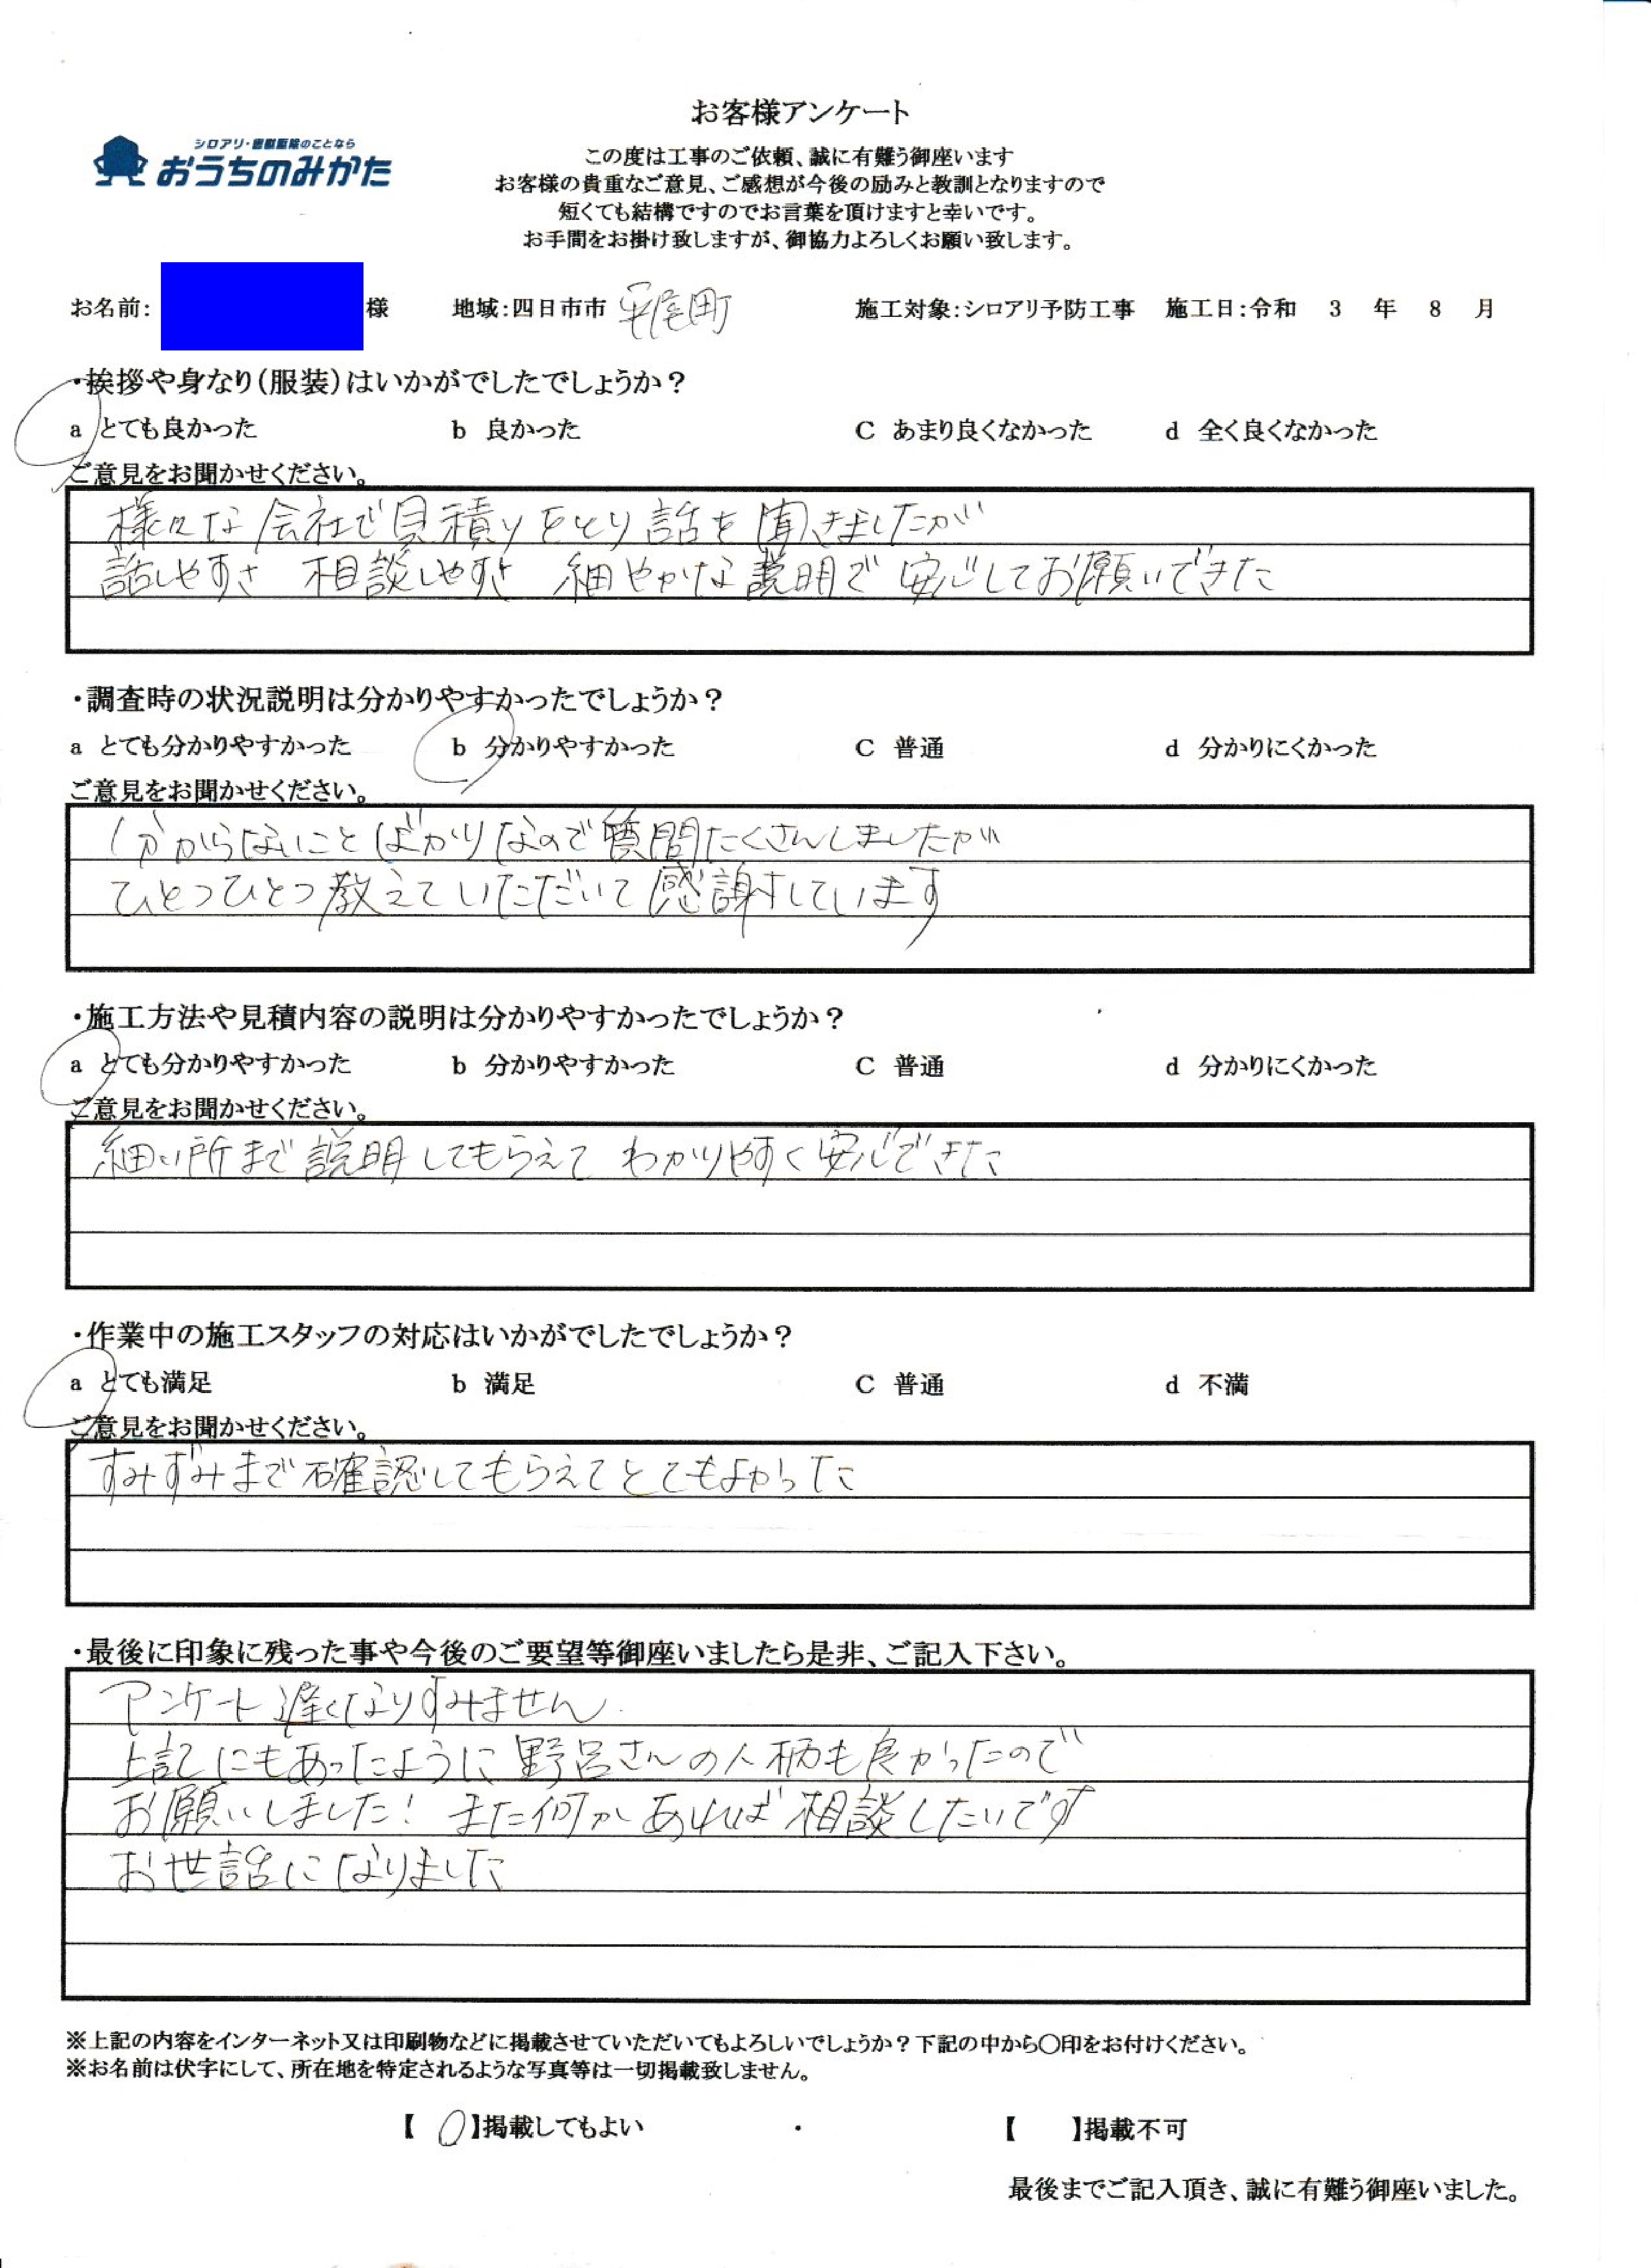 お客様アンケート
シロアリ・害獣駆除のことなら
おうちのみかた
この度は工事のご依頼、誠に有難う御座います
お客様の貴重なご意見、ご感想が今後の励みと教訓となりますので
短くても結構ですのでお言葉を頂けますと幸いです。
お手間をお掛け致しますが、御協力よろしくお願い致します。
お名前: 様 地域:四日市市 平尾町 施工対象:シロアリ予防工事 施工日:令和 3 年 8 月
・挨拶や身なり(服装)はいかがでしたでしょうか?
a とても良かった b 良かった C あまり良くなかった d 全く良くなかった
ご意見をお聞かせください。
様々な会社で見積りをとり話を聞きましたが
話しやすさ 相談しやすさ 細やかな説明で安心してお願いできた
・調査時の状況説明は分かりやすかったでしょうか?
a とても分かりやすかった b 分かりやすかった C 普通 d 分かりにくかった
ご意見をお聞かせください。
分からないことばかりなので質問たくさんしましたが
ひとつひとつ教えていただいて感謝しています
・施工方法や見積内容の説明は分かりやすかったでしょうか?
a とても分かりやすかった b 分かりやすかった C 普通 d 分かりにくかった
ご意見をお聞かせください。
細い所まで説明してもらえて わかりやすく安心できた
・作業中の施工スタッフの対応はいかがでしたでしょうか?
a とても満足 b 満足 C 普通 d 不満
ご意見をお聞かせください。
すみずみまで確認してもらえてとてもよかった
・最後に印象に残った事や今後のご要望等御座いましたら是非、ご記入下さい。
アンケート遅くなりすみません
上記にもあったように野呂さんの人柄も良かったので
お願いしました! また何かあれば相談したいです
お世話になりました
※上記の内容をインターネット又は印刷物などに掲載させていただいてもよろしいでしょうか?下記の中から〇印をお付けください。
※お名前は伏字にして、所在地を特定されるような写真等は一切掲載致しません。
【 〇 】掲載してもよい ・ 【 】掲載不可
最後までご記入頂き、誠に有難う御座いました。